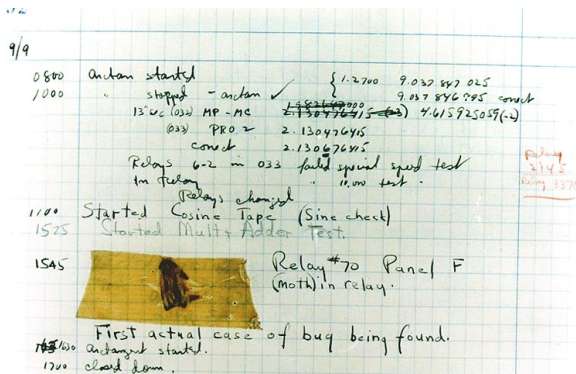 9/9
0800 Antan started { 1.2700 9.037 847 025
1000 " stopped - antan ✓ 9.037 846 995 conect
13" UC (032) MP - MC 2.130476415 (-3) 4.615925059(-2)
(033) PRO 2 2.130476415
conect 2.130676415
Relays 6-2 in 033 failed special speed test
In Relay " 10,000 test.
Relay
2145
Relay 3370
Relays changed
1100 Started Cosine Tape (Sine check)
1525 Started Mult + Adder Test.
1545 Relay #70 Panel F
(moth) in relay.
First actual case of bug being found.
1630 antangent started.
1700 closed down.